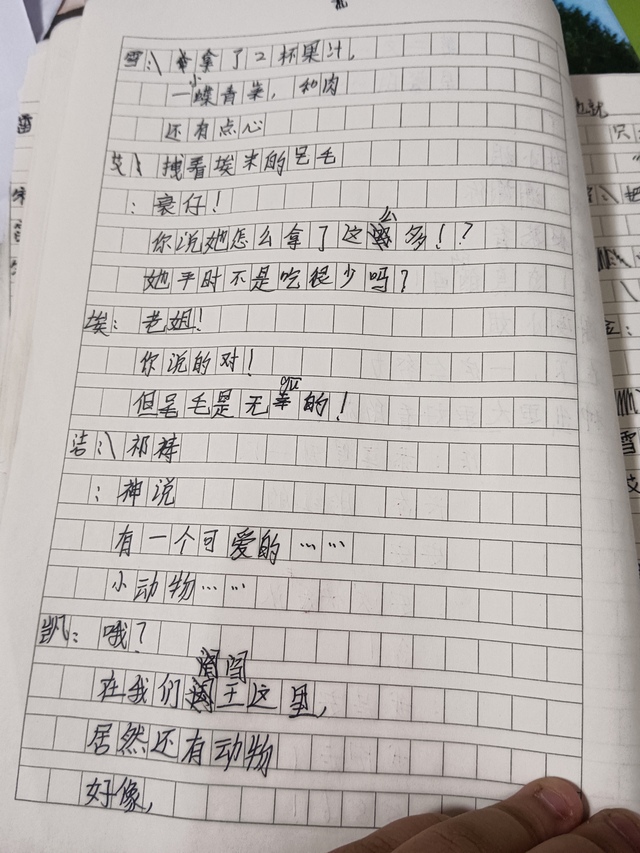 雪：\ 拿了2杯果汁，
一小蝶青菜，和肉
还有点心
艾\ 拽着埃米的呆毛
：衰仔！
你说她怎么拿了这么多！？
她平时不是吃很少吗？
埃：老姐！
你说的对！
但呆毛是无辜的！
洁：\ 祁祷
：神说
有一个可爱的……
小动物……
凯：哦？
在我们阎王这里，
居然还有动物
好像，